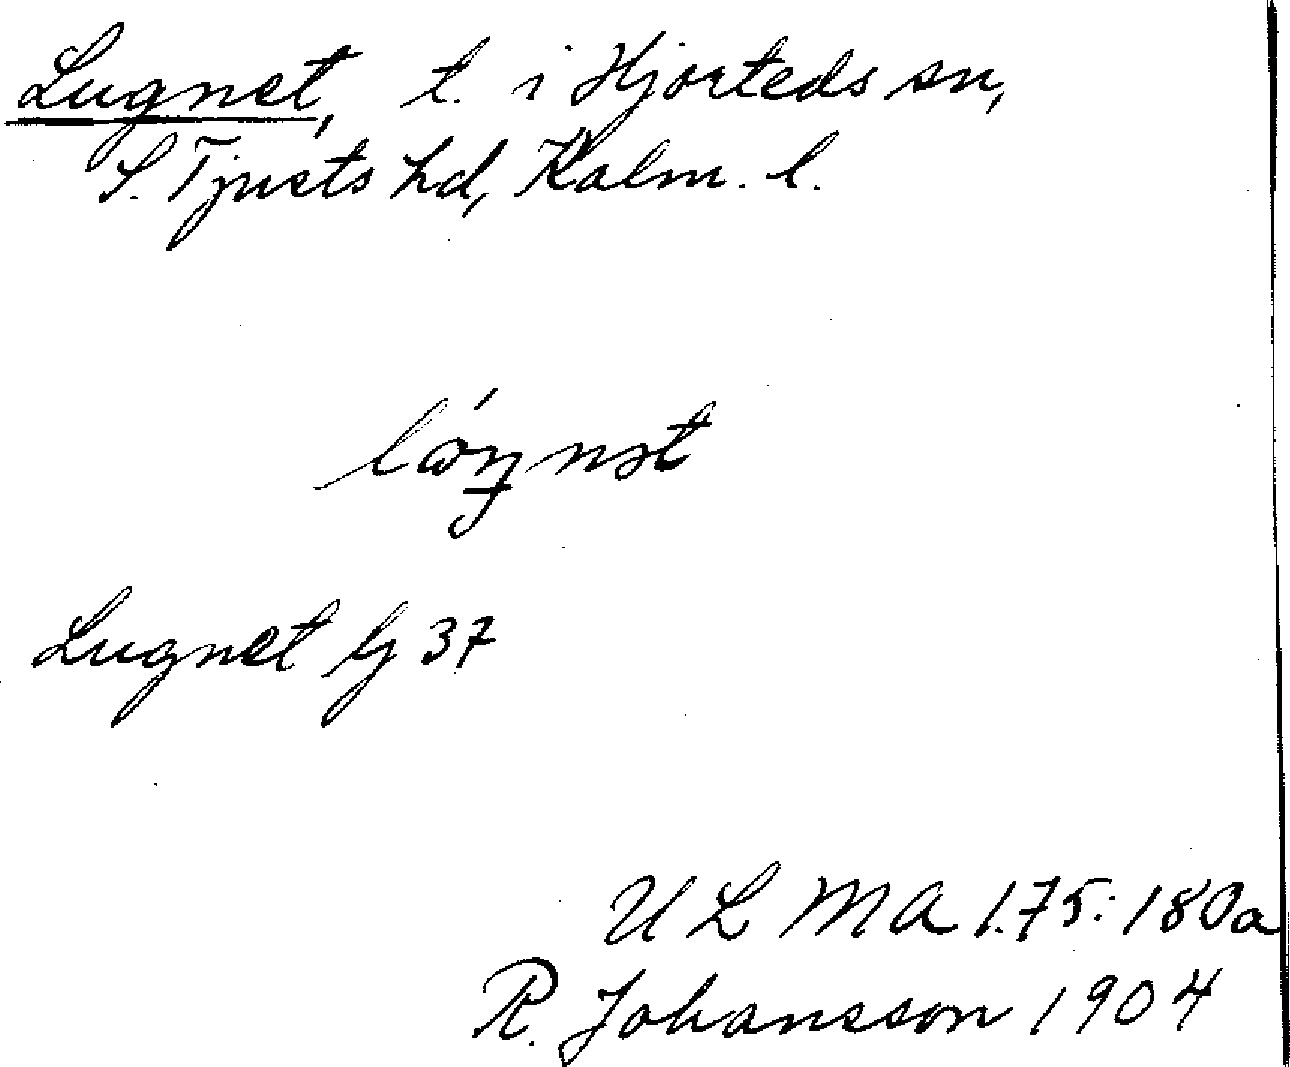 Lugnet, t. i Hjorteds sn,
S. Tjusts hd, Kalm. l.
Lugnet Gj 37
ULMA 175:180a
R. Johansson 1904